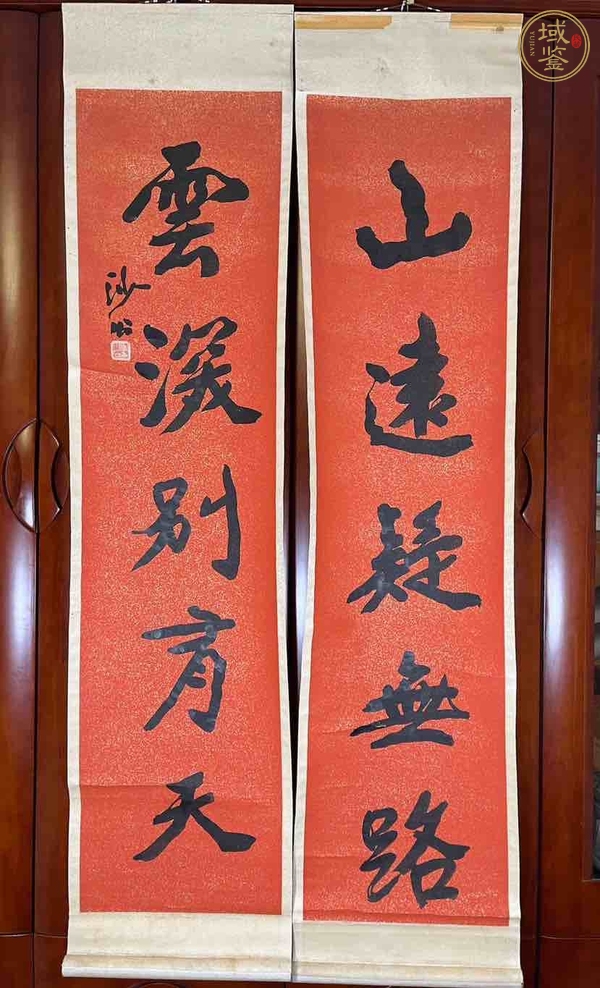 山遠疑無路
雲深別有天
沙
域鉴
YUJIAN